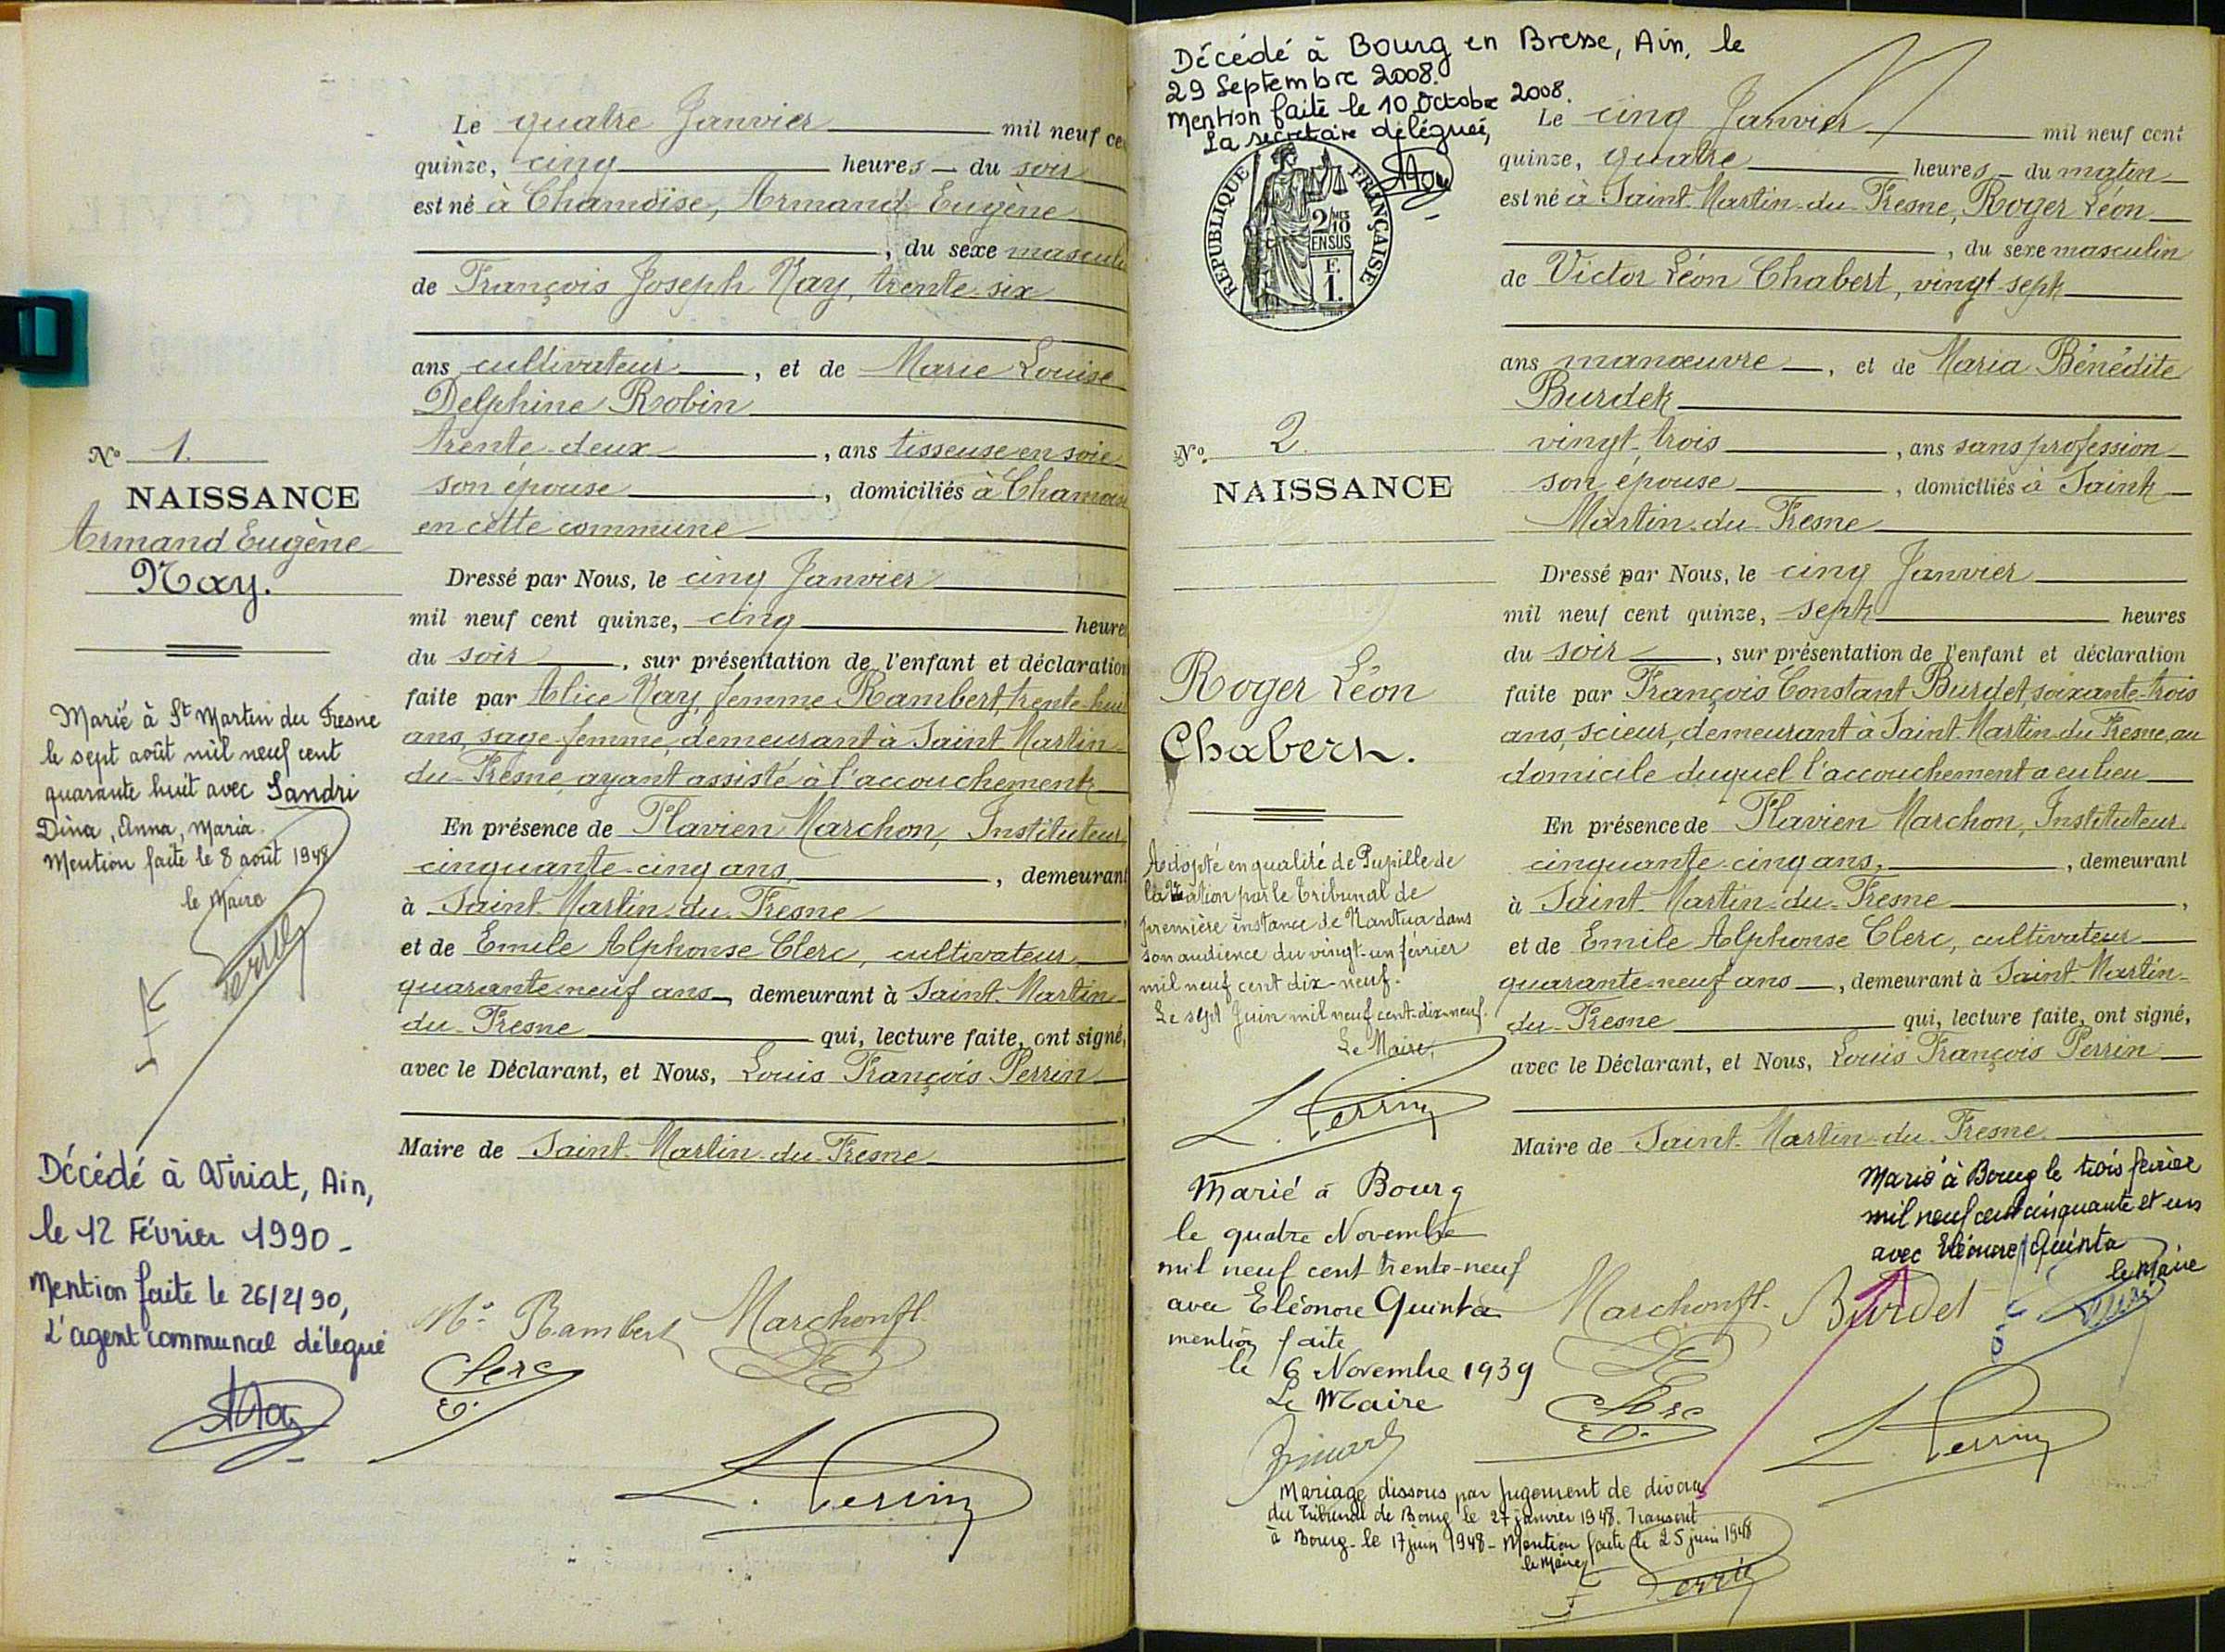 Le quatre Janvier mil neuf ce
quinze, cinq heures du soir
est né à Chamoise, Armand Eugène
, du sexe masculi
de François Joseph Nay, trente-six
ans cultivateur, et de Marie Louise
Delphine Robin
trente-deux, ans tisseuse en soie
son épouse, domiciliés à Chamoise
en cette commune
Dressé par Nous, le cinq Janvier
mil neuf cent quinze, cinq heure
du soir, sur présentation de l'enfant et déclaration
faite par Alice Nay, femme Rambert, trente-huit
ans, sage-femme, demeurant à Saint-Martin-
du-Fresne, ayant assisté à l'accouchement
En présence de Flavien Marchon, Instituteur,
cinquante-cinq ans, demeurant
à Saint-Martin-du-Fresne
et de Emile Alphonse Clerc, cultivateur
quarante-neuf ans, demeurant à Saint-Martin-
du-Fresne qui, lecture faite, ont signé,
avec le Déclarant, et Nous, Louis François Perrin
Maire de Saint-Martin-du-Fresne
No 1.
NAISSANCE
Armand Eugène
Nay.
Marié à St Martin du Fresne
le sept août mil neuf cent
quarante huit avec Sandri
Dina, Anna, Maria.
Mention faite le 8 août 1948
le Maire
Décédé à Viriat, Ain,
le 12 Février 1990 -
Mention faite le 26/2/90,
L'agent communal délégué
Rambert Marchon fl.
Clerc
E.
L. Perrin
Décédé à Bourg en Bresse, Ain, le
29 Septembre 2008.
Mention faite le 10 Octobre 2008.
La secrétaire déléguée,
REPUBLIQUE FRANÇAISE
2/10 MES
EN SUS
F.
1.
Le cinq Janvier mil neuf cent
quinze, quatre heures du matin
est né à Saint-Martin-du-Fresne, Roger Léon
, du sexe masculin
de Victor Léon Chabert, vingt-sept
ans manœuvre, et de Maria Bénédite
Burdet
vingt-trois, ans sans profession
son épouse, domiciliés à Saint-
Martin-du-Fresne
Dressé par Nous, le cinq Janvier
mil neuf cent quinze, sept heures
du soir, sur présentation de l'enfant et déclaration
faite par François Constant Burdet, soixante-trois
ans, scieur, demeurant à Saint-Martin-du-Fresne, au
domicile duquel l'accouchement a eu lieu
En présence de Flavien Marchon, Instituteur
cinquante-cinq ans, demeurant
à Saint-Martin-du-Fresne,
et de Emile Alphonse Clerc, cultivateur
quarante-neuf ans, demeurant à Saint-Martin-
du-Fresne qui, lecture faite, ont signé,
avec le Déclarant, et Nous, Louis François Perrin
Maire de Saint-Martin-du-Fresne
No. 2.
NAISSANCE
Roger Léon
Chabert.
Adopté en qualité de Pupille de
la Nation par le Tribunal de
première instance de Nantua dans
son audience du vingt-un février
mil neuf cent dix-neuf.
Le sept Juin mil neuf cent-dix-neuf.
Le Maire,
L. Perrin
Marié à Bourg
le quatre Novembre
mil neuf cent trente-neuf
avec Eléonore Quinta
mention faite
le 6 Novembre 1939
Le Maire
Marié à Bourg le trois février
mil neuf cent cinquante et un
avec Eléonore Quinta
le Maire
Marchon fl. Burdet
Clerc
E.
L. Perrin
Mariage dissous par jugement de divorce
du Tribunal de Bourg le 27 janvier 1948. Transcrit
à Bourg le 17 juin 1948 - Mention faite le 25 juin 1948
le Maire